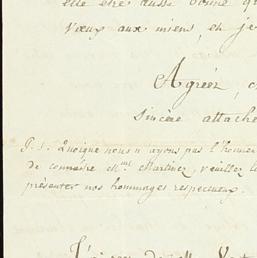 elle être aussi bonne qu
vœux aux miens, et je
Agréez, c
sincère attache
P.S. Quoique nous n'ayons pas l'honneur
de connaître Mme Martinez, veuillez l
présenter nos hommages respectueux.